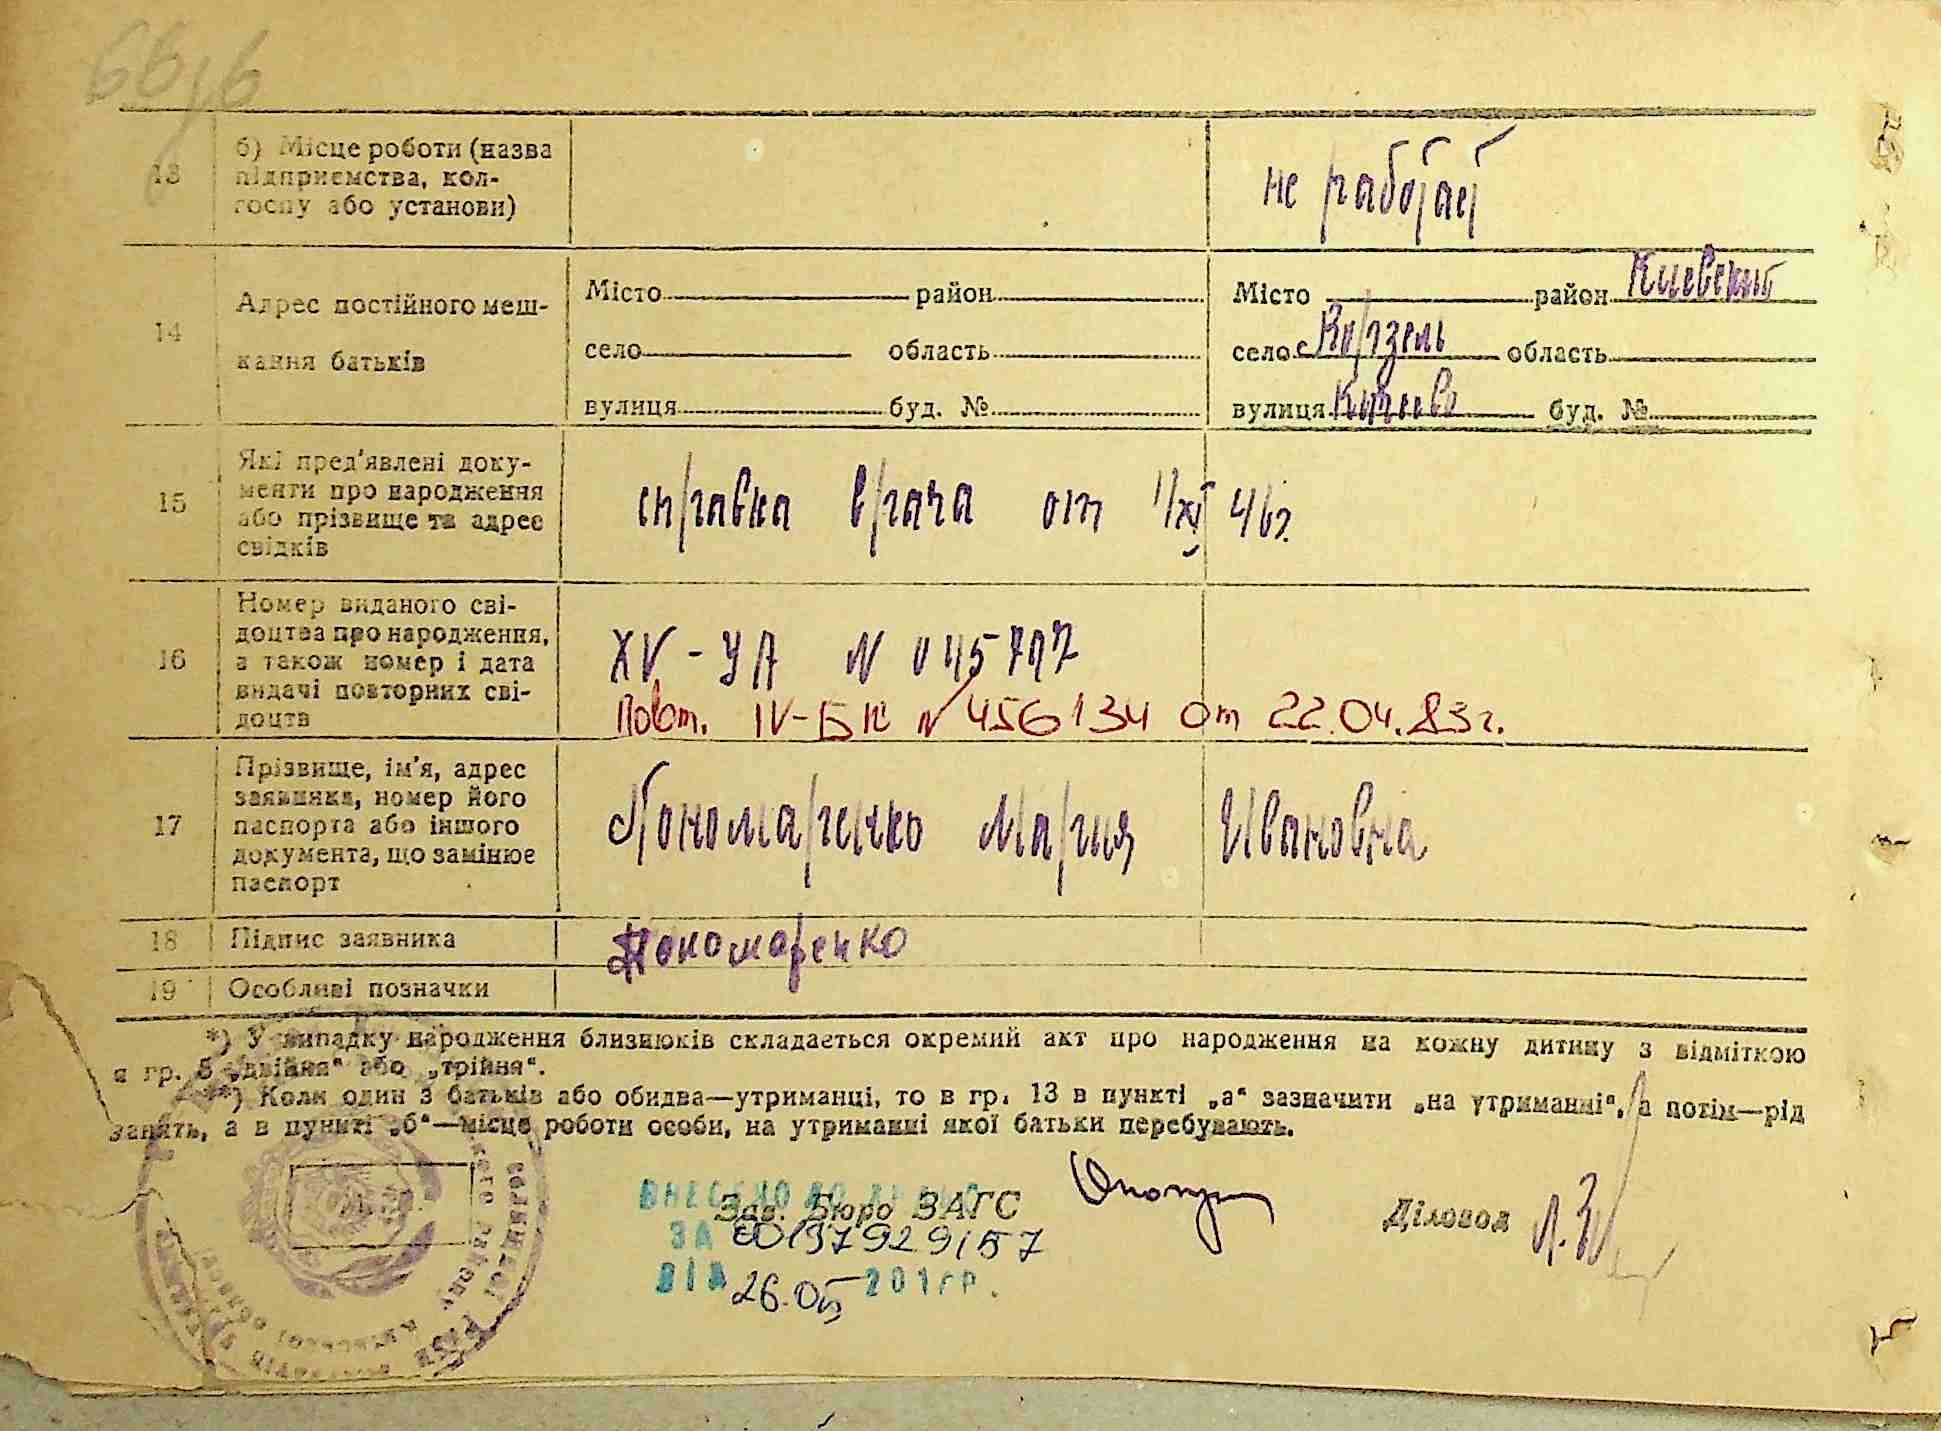 66/6
13
б) Місце роботи (назва
підприємства, кол-
госпу або установи)
не работает
14
Адрес постійного меш-
кання батьків
Місто район
село область
вулиця буд. №
Місто район Киевский
село с Ворзель область
вулиця буд. №
15
Які пред'явлені доку-
менти про народження
або прізвище та адрес
свідків
справка врача от 1/XI 46г.
16
Номер виданого сві-
доцтва про народження,
а також номер і дата
видачі повторних сві-
доцтв
XV - УА N 045797
Повт. IV-БК N 456134 от 22.04.83г.
17
Прізвище, ім'я, адрес
заявника, номер його
паспорта або іншого
документа, що замінює
паспорт
Пономаренко Мария Ивановна
18
Підпис заявника
Пономаренко
19
Особливі позначки
*) У випадку народження близнюків складається окремий акт про народження на кожну дитину з відміткою
в гр. 5 „двійня“ або „трійня“.
**) Коли один з батьків або обидва—утриманці, то в гр. 13 в пункті „а“ зазначити „на утриманні“, а потім—рід
занять, а в пункті „б“—місце роботи особи, на утриманні якої батьки перебувають.
Зав. Бюро ЗАГС
Діловод
ВНЕСЕНО ДО
ЗА 00137929157
ВІД 26.05 201 р.